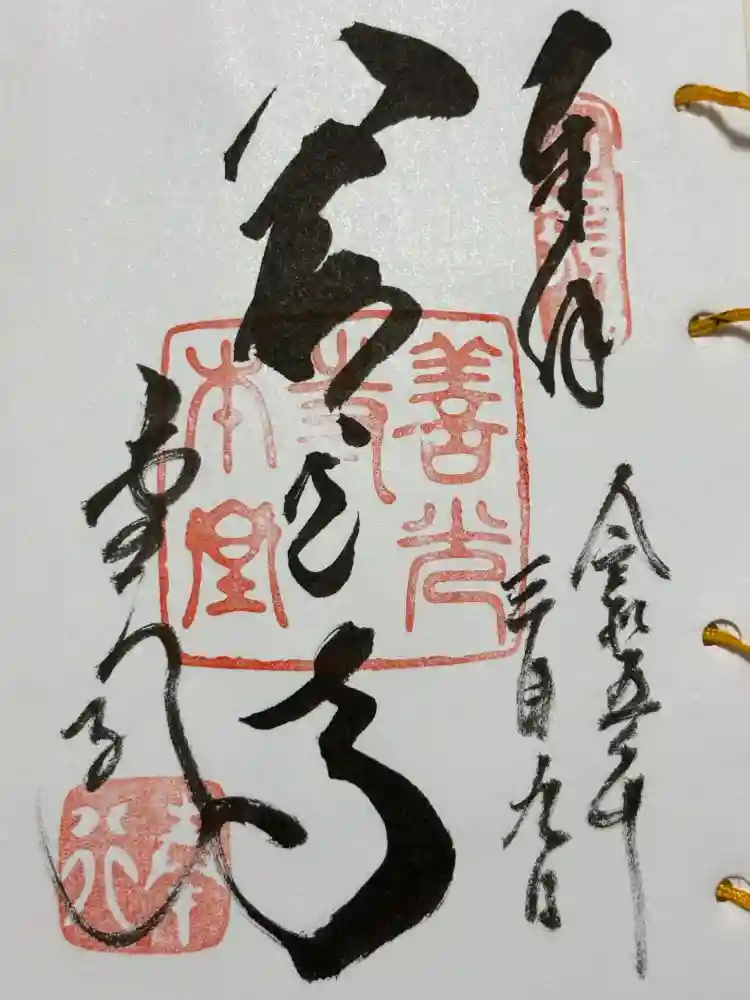 奉拝
令和五年
三月九日
善光寺
善光
寺
本堂
奉行